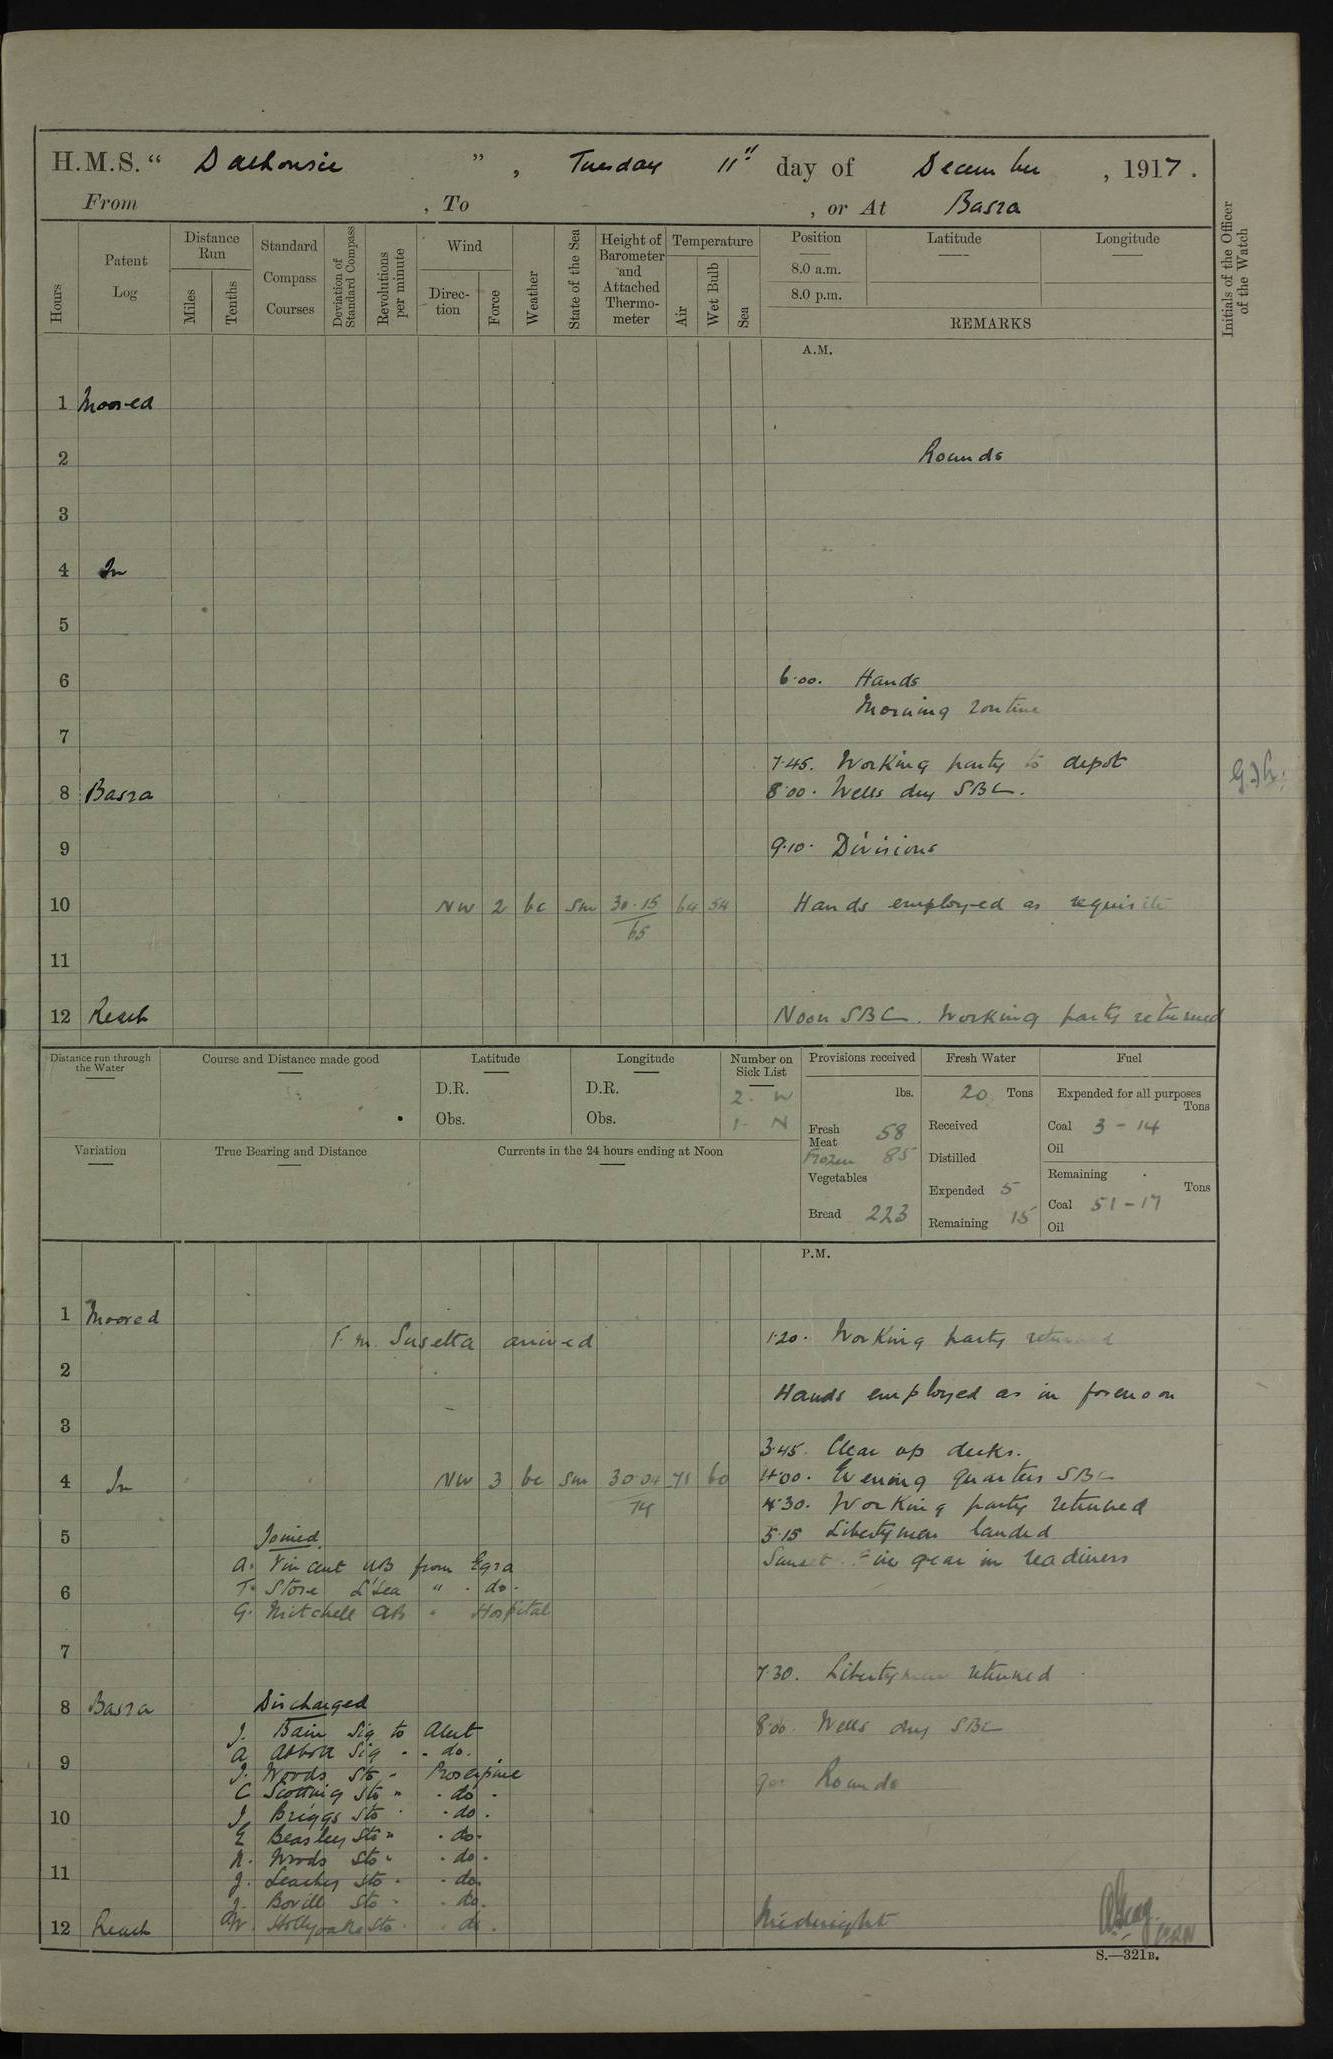 H.M.S. " Dalhousie ", Tuesday 11th day of December, 1917.
From , To , or At Basra
Hours
Patent Log
Distance Run
Miles
Tenths
Standard Compass Courses
Deviation of Standard Compass
Revolutions per minute
Wind
Direction
Force
Weather
State of the Sea
Height of Barometer and Attached Thermometer
Temperature
Air
Wet Bulb
Sea
Position
8.0 a.m.
8.0 p.m.
Latitude
Longitude
REMARKS
Initials of the Officer of the Watch
A.M.
1 Moored
2 Rounds
3
4 In
5
6 6.00. Hands
Morning routine
7
7.45. Working party to depot
8 Basra 8.00. Wells dry SBC.
9 9.10. Divisions
10 NW 2 bc sm 30.15 64 54 Hands employed as requisite
65
11
12 Reach Noon SBC. Working party returned
Distance run through the Water
Course and Distance made good
Latitude
D.R.
Obs.
Longitude
D.R.
Obs.
Number on Sick List
2. W
1. N
Provisions received
lbs.
Fresh Meat 58
Frozen 85
Vegetables
Bread 223
Fresh Water
20 Tons
Received
Distilled
Expended 5
Remaining 15
Fuel
Expended for all purposes
Tons
Coal 3-14
Oil
Remaining
Tons
Coal 51-17
Oil
Variation
True Bearing and Distance
Currents in the 24 hours ending at Noon
P.M.
1 Moored
T.M. arrived 1.20. Working party returned
2
Hands employed as in forenoon
3
3.45. Clear up decks.
4 In NW 3 bc sm 30.04 71 60 4.00. Evening quarters SBC
74 4.30. Working party returned
5 Joined 5.15 Libertymen landed
A. Vincent AB from Ezra Sunset. Fire gear in readiness
6 T. Store L'Sea " do.
G. Mitchell AB " Hospital
7
7.30. Libertymen returned
8 Basra Discharged
J. Bain Sig to Alert 8.00. Wells dry SBC
A. Abbott Sig " do.
9 J. Woods Sto " Proserpine Rounds
C Sto " do.
10 J. Briggs Sto " do.
E Beasley Sto " do.
N. Woods Sto " do.
11 J. Sto " do.
J. Bovill Sto " do.
12 Reach W. Hollyoake Sto " do. Midnight
S.—321B.